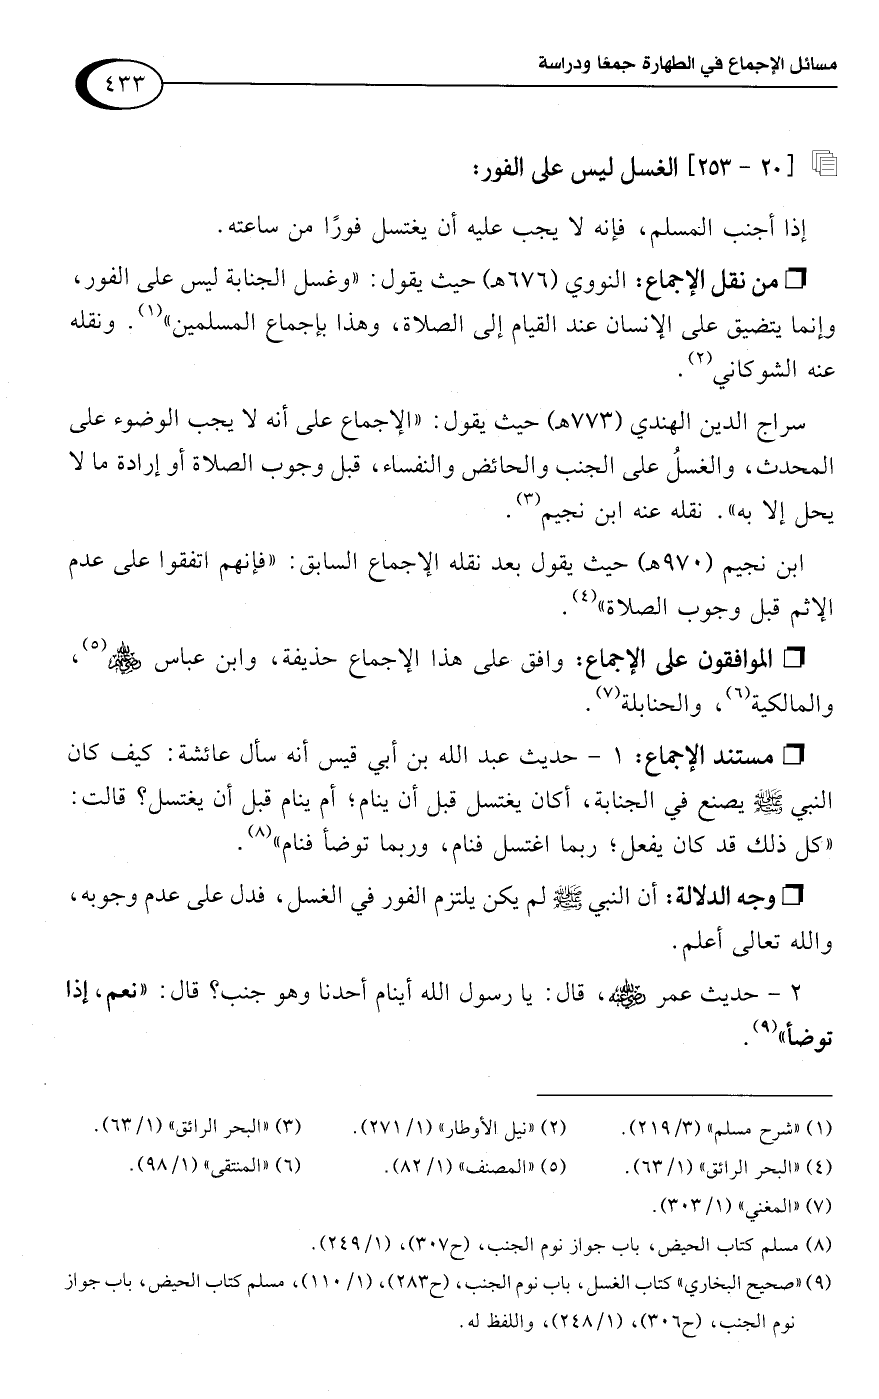 مسائل الإجماع في الطهارة جمعًا ودراسة
٤٣٣
[٢٠ - ٢٥٣] الغسل ليس على الفور:
إذا أجنب المسلم، فإنه لا يجب عليه أن يغتسل فورًا من ساعته.
❒ من نقل الإجماع: النووي (٦٧٦هـ) حيث يقول: «وغسل الجنابة ليس على الفور،
وإنما يتضيق على الإنسان عند القيام إلى الصلاة، وهذا بإجماع المسلمين»(١). ونقله
عنه الشوكاني(٢).
سراج الدين الهندي (٧٧٣هـ) حيث يقول: «الإجماع على أنه لا يجب الوضوء على
المحدث، والغسلُ على الجنب والحائض والنفساء، قبل وجوب الصلاة أو إرادة ما لا
يحل إلا به». نقله عنه ابن نجيم(٣).
ابن نجيم (٩٧٠هـ) حيث يقول بعد نقله الإجماع السابق: «فإنهم اتفقوا على عدم
الإثم قبل وجوب الصلاة»(٤).
❒ الموافقون على الإجماع: وافق على هذا الإجماع حذيفة، وابن عباس رضي الله عنهم(٥)،
والمالكية(٦)، والحنابلة(٧).
❒ مستند الإجماع: ١ - حديث عبد الله بن أبي قيس أنه سأل عائشة: كيف كان
النبي ﷺ يصنع في الجنابة، أكان يغتسل قبل أن ينام؛ أم ينام قبل أن يغتسل؟ قالت:
«كل ذلك قد كان يفعل؛ ربما اغتسل فنام، وربما توضأ فنام»(٨).
❒ وجه الدلالة: أن النبي ﷺ لم يكن يلتزم الفور في الغسل، فدل على عدم وجوبه،
والله تعالى أعلم.
٢ - حديث عمر رضي الله عنه، قال: يا رسول الله أينام أحدنا وهو جنب؟ قال: «نعم، إذا
توضأ»(٩).
(١) «شرح مسلم» (٢١٩/٣). (٢) «نيل الأوطار» (٢٧١/١). (٣) «البحر الرائق» (٦٣/١).
(٤) «البحر الرائق» (٦٣/١). (٥) «المصنف» (٨٢/١). (٦) «المنتقى» (٩٨/١).
(٧) «المغني» (٣٠٣/١).
(٨) مسلم كتاب الحيض، باب جواز نوم الجنب، (ح٣٠٧)، (٢٤٩/١).
(٩) «صحيح البخاري» كتاب الغسل، باب نوم الجنب، (ح٢٨٣)، (١١٠/١)، مسلم كتاب الحيض، باب جواز
نوم الجنب، (ح٣٠٦)، (٢٤٨/١)، واللفظ له.